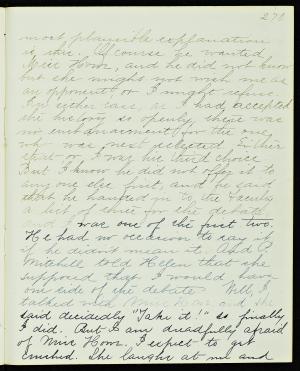 270
most plausible explanation
is this. Of course he wanted
Miss Hour, and he did not know
but she might not wish me as
an opponent or I might refuse.
In either case, as I had accepted
the history so openly, there was
no embarrassment for the one
who was next selected. In their
I was his third choice
But I know he did not offer it to
any one else first, and he said
that he handed in to the Faculy
a list of three for the debate
and I was one of the first two.
He had no occasion to say it
if he didn't mean it. And
Mitchell told Helen that she
supposed that I would have
one side of the debate. Well, I
talked with Miss Hour and she
said decidedly "Take it!" so finally
I did. But I am dreadfully afraid
of Miss Hour. I expect to get
crushed. She laughs at me and